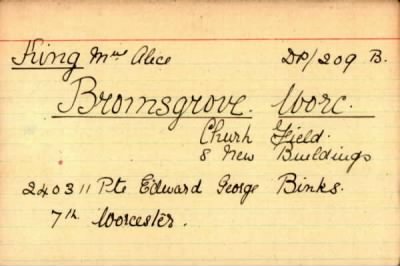 King Mrs Alice DP/209 B.
Bromsgrove. Worc.
Churh Field.
8 New Buildings
240311 Pte Edward George Binks.
7th Worcester.